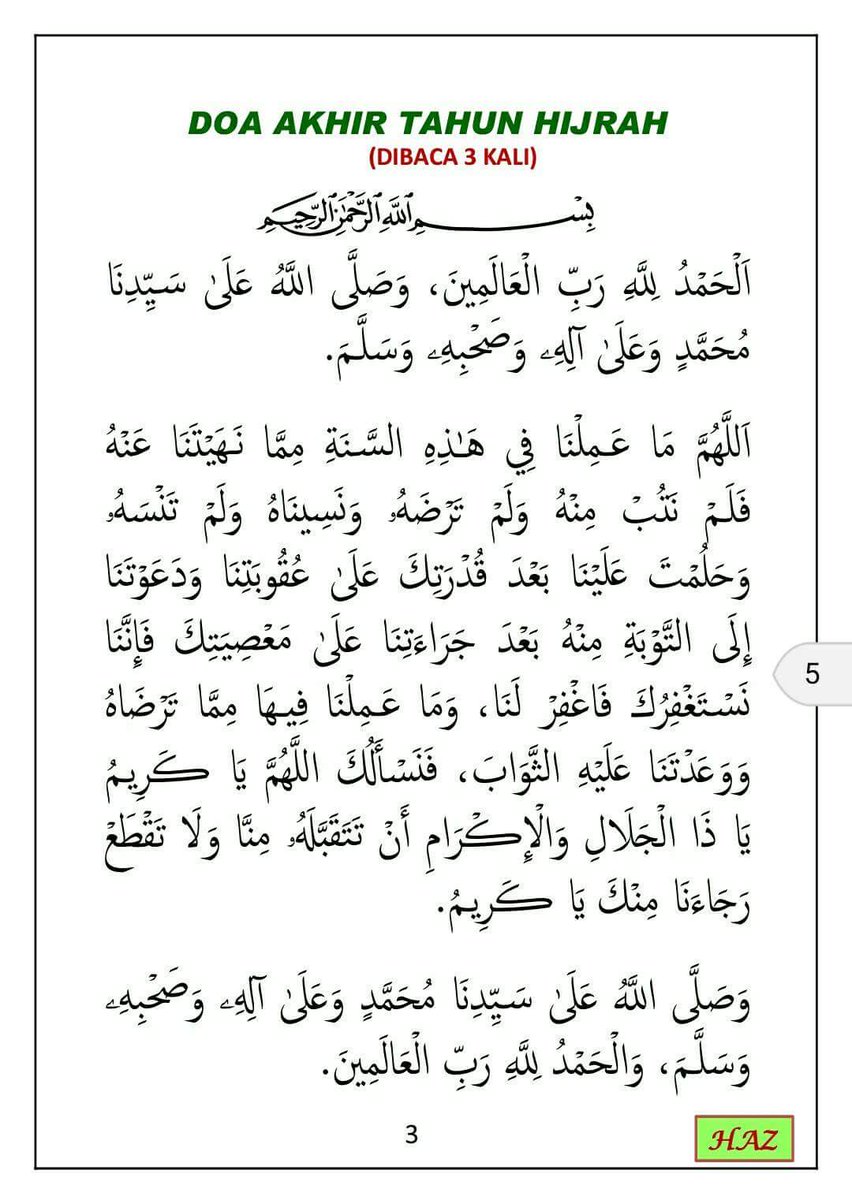 DOA AKHIR TAHUN HIJRAH
(DIBACA 3 KALI)
بِسْمِ اللَّهِ الرَّحْمَٰنِ الرَّحِيمِ
اَلْحَمْدُ لِلَّهِ رَبِّ الْعَالَمِينَ، وَصَلَّى اللَّهُ عَلَىٰ سَيِّدِنَا
مُحَمَّدٍ وَعَلَىٰ آلِهِۦ وَصَحْبِهِۦ وَسَلَّمَ.
اَللَّهُمَّ مَا عَمِلْنَا فِي هَٰذِهِ السَّنَةِ مِمَّا نَهَيْتَنَا عَنْهُ
فَلَمْ نَتُبْ مِنْهُ وَلَمْ تَرْضَهُۥ وَنَسِينَاهُ وَلَمْ تَنْسَهُۥ
وَحَلُمْتَ عَلَيْنَا بَعْدَ قُدْرَتِكَ عَلَىٰ عُقُوبَتِنَا وَدَعَوْتَنَا
إِلَى التَّوْبَةِ مِنْهُ بَعْدَ جَرَاءَتِنَا عَلَىٰ مَعْصِيَتِكَ فَإِنَّنَا
نَسْتَغْفِرُكَ فَاغْفِرْ لَنَا، وَمَا عَمِلْنَا فِيهَا مِمَّا تَرْضَاهُ
وَوَعَدْتَنَا عَلَيْهِ الثَّوَابَ، فَنَسْأَلُكَ اللَّهُمَّ يَا كَرِيمُ
يَا ذَا الْجَلَالِ وَالْإِكْرَامِ أَنْ تَتَقَبَّلَهُۥ مِنَّا وَلَا تَقْطَعْ
رَجَاءَنَا مِنْكَ يَا كَرِيمُ.
وَصَلَّى اللَّهُ عَلَىٰ سَيِّدِنَا مُحَمَّدٍ وَعَلَىٰ آلِهِۦ وَصَحْبِهِۦ
وَسَلَّمَ، وَالْحَمْدُ لِلَّهِ رَبِّ الْعَالَمِينَ.
5
3
HAZ